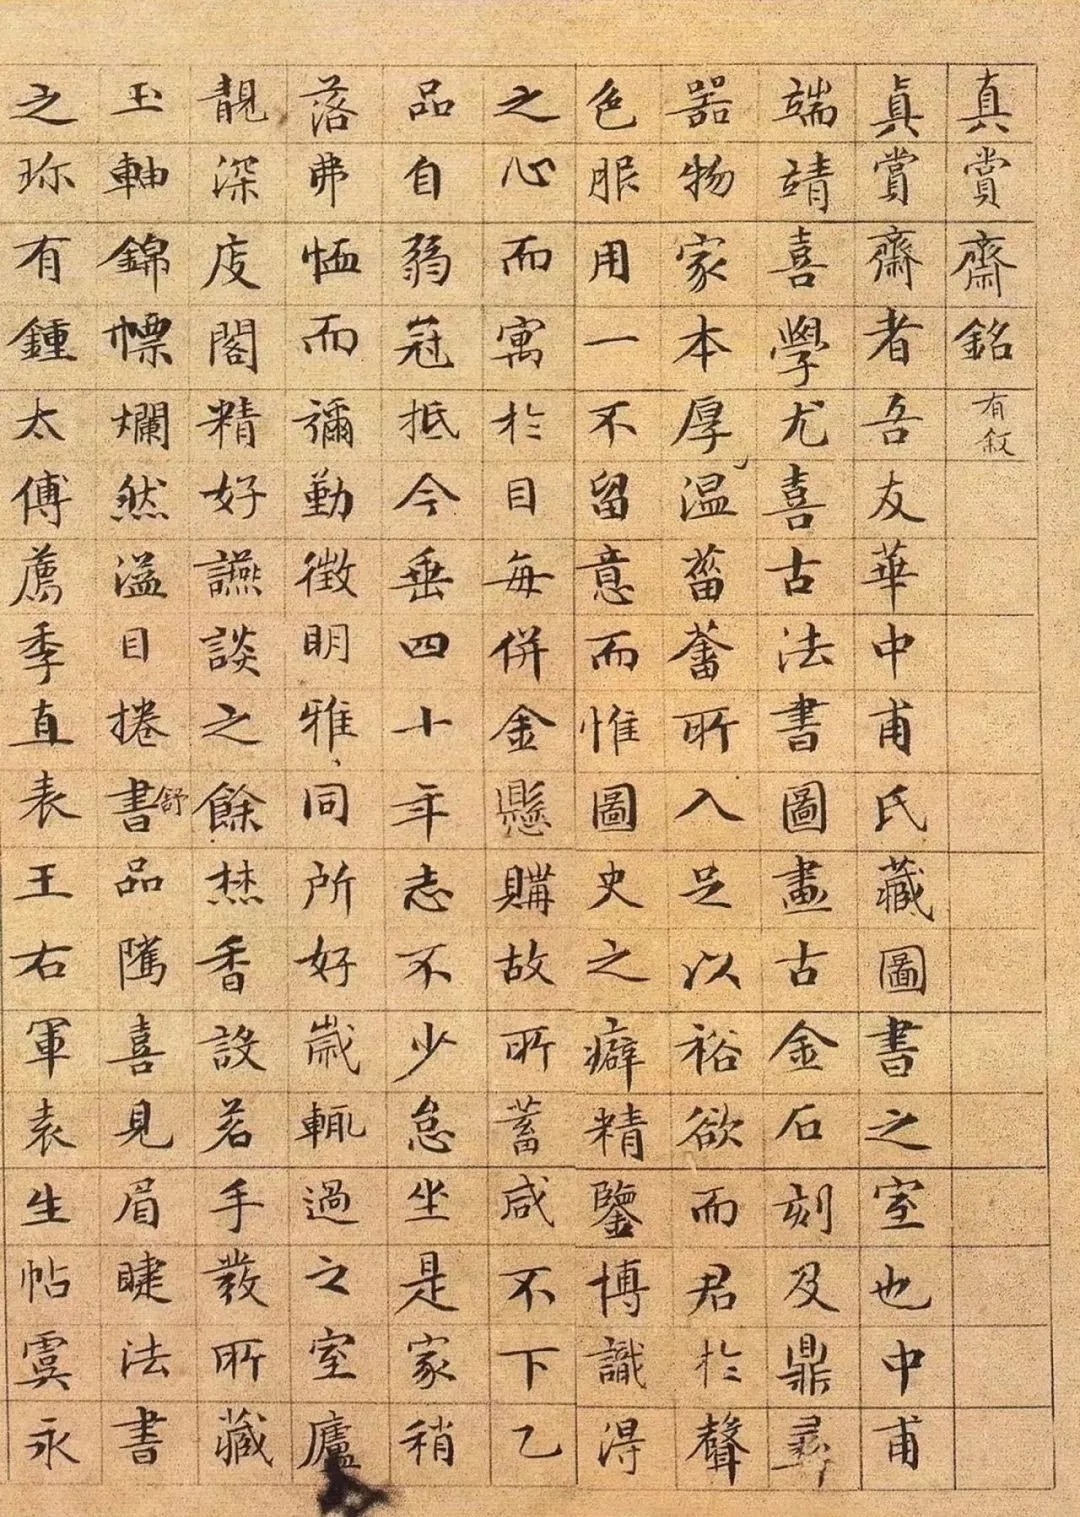 真賞齋銘有敘
真賞齋者吾友華中甫氏藏圖書之室也中甫
端靖喜學尤喜古法書圖畫古金石刻及鼎彞
器物家本厚溫菑畬所入足以裕欲而君於聲
色服用一不留意而惟圖史之癖精鑒博識得
之心而寓於目每併金懸購故所蓄咸不下乙
品自弱冠抵今垂四十年志不少怠坐是家稍
落弗恤而彌勤徵明雅同所好歲輒過之室廬
靚深庋閣精好讌談之餘焚香設茗手發所藏
玉軸錦幖爛然溢目捲書舒品隲喜見眉睫法書
之珎有鍾太傅薦季直表王右軍袁生帖虞永